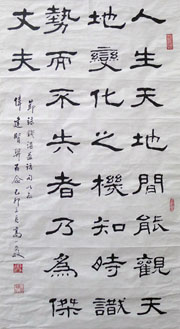 人生天地間能觀天
地變化之機知時識
勢而不失者乃為傑
丈夫